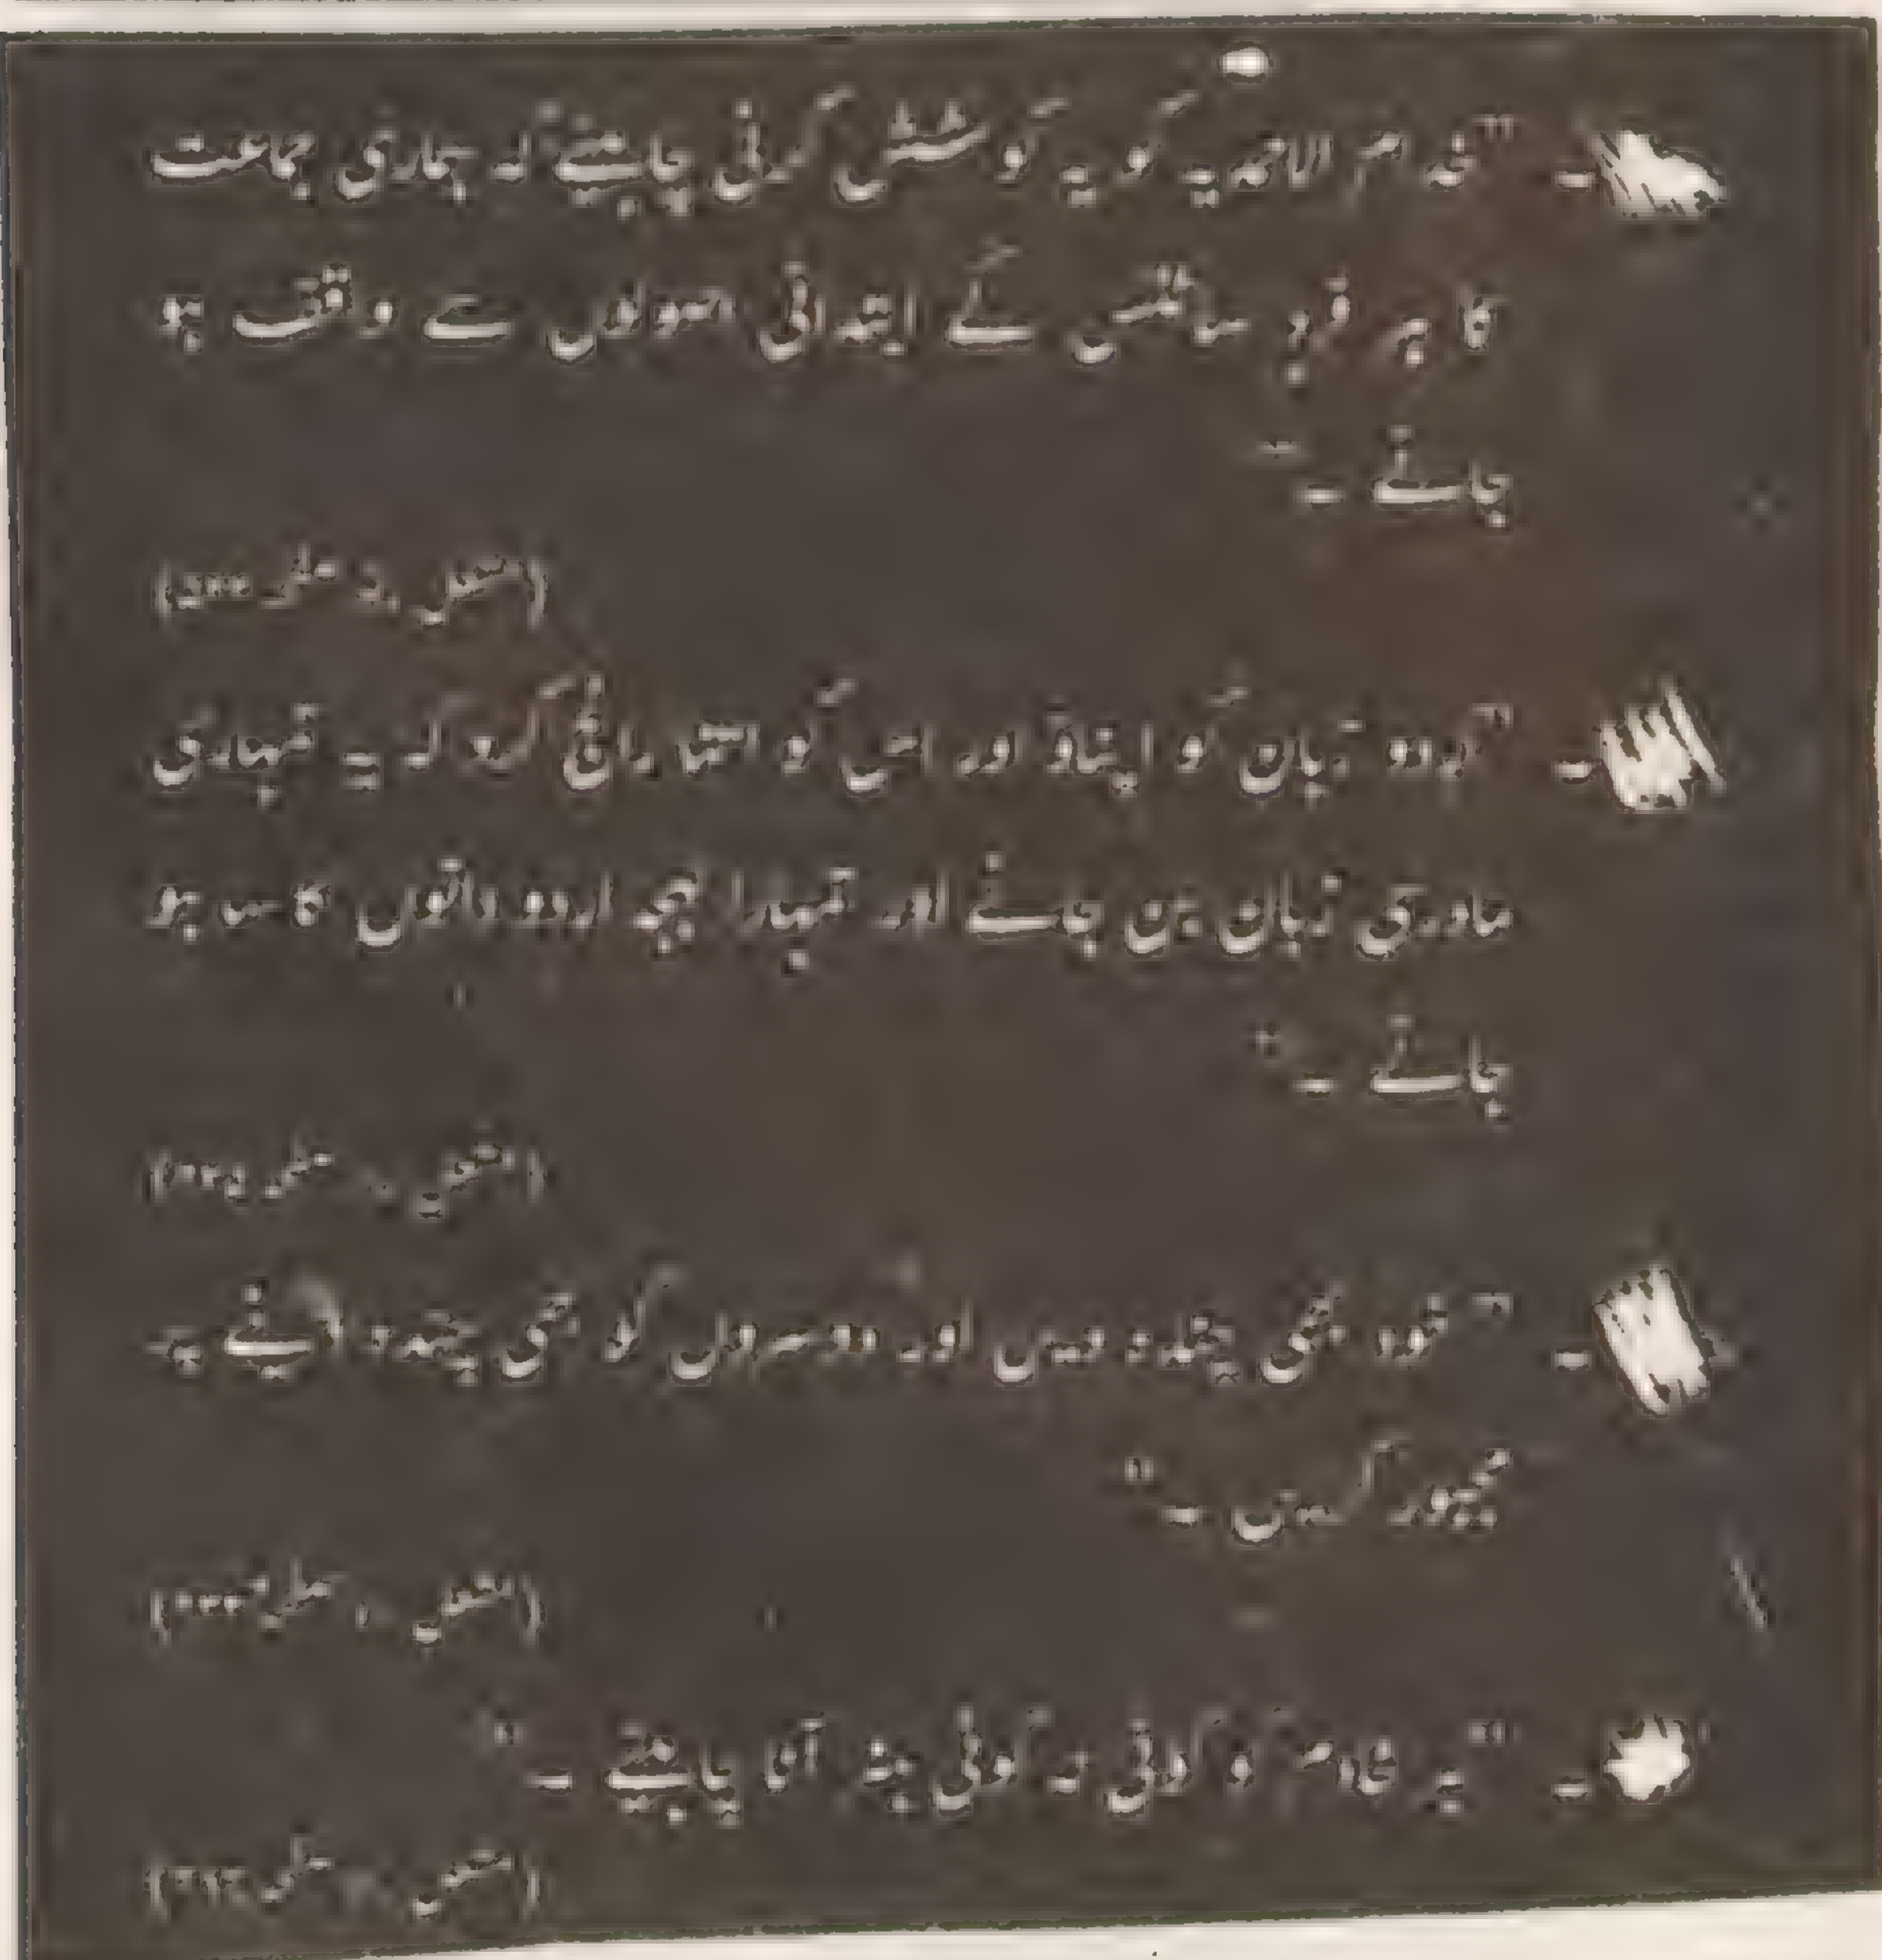 "خدام الاحمدیہ کو یہ کوشش کرنی چاہئے کہ ہماری جماعت
کا ہر فرد سائنس کے ابتدائی اصولوں سے واقف ہو
جائے ۔"
(مشعل راہ
"اردو زبان کو اپناؤ اور اس کو اتنا رائج کرو کہ یہ تمہاری
مادری زبان بن جائے اور تمہارا لہجہ اردو دانوں کا سا ہو
جائے ۔"
(مشعل راہ
"خود بھی چندہ دیں اور دوسروں کو بھی چندہ دینے پر
مجبور کریں ۔"
(مشعل راہ
"ہر خادم کو کوئی نہ کوئی ہنر آنا چاہئے ۔"
(مشعل راہ